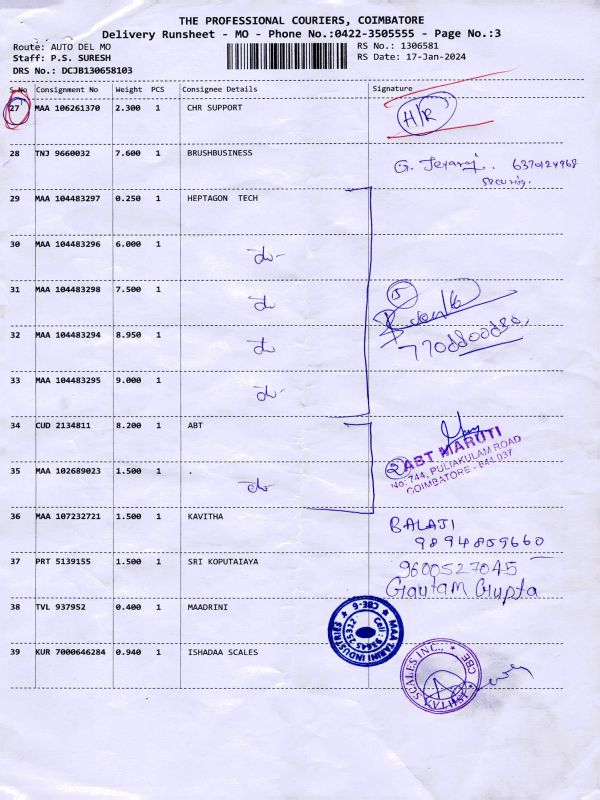 THE PROFESSIONAL COURIERS, COIMBATORE
Delivery Runsheet - MO - Phone No.:0422-3505555 - Page No.:3
Route: AUTO DEL MO RS No.: 1306581
Staff: P.S. SURESH RS Date: 17-Jan-2024
DRS No.: DCJB130658103
S.No Consignment No Weight PCS Consignee Details Signature
27 MAA 106261370 2.300 1 CHR SUPPORT H/R
28 TNJ 9660032 7.600 1 BRUSHBUSINESS G. Jeyaraj. 6370124968
security.
29 MAA 104483297 0.250 1 HEPTAGON TECH
30 MAA 104483296 6.000 1 do
31 MAA 104483298 7.500 1 do 5
32 MAA 104483294 8.950 1 do
33 MAA 104483295 9.000 1 do
34 CUD 2134811 8.200 1 ABT
2 ABT MARUTI
No: 744, PULIAKULAM ROAD
COIMBATORE - 641 037
35 MAA 102689023 1.500 1 . do
36 MAA 107232721 1.500 1 KAVITHA BALAJI
9894859660
37 PRT 5139155 1.500 1 SRI KOPUTAIAYA 9600527045
Gautam Gupta
38 TVL 937952 0.400 1 MAADRINI
MAA TARINI INDUSTRIES
CBE-6
39 KUR 7000646284 0.940 1 ISHADAA SCALES
ISHTAA SCALES INC., CBE